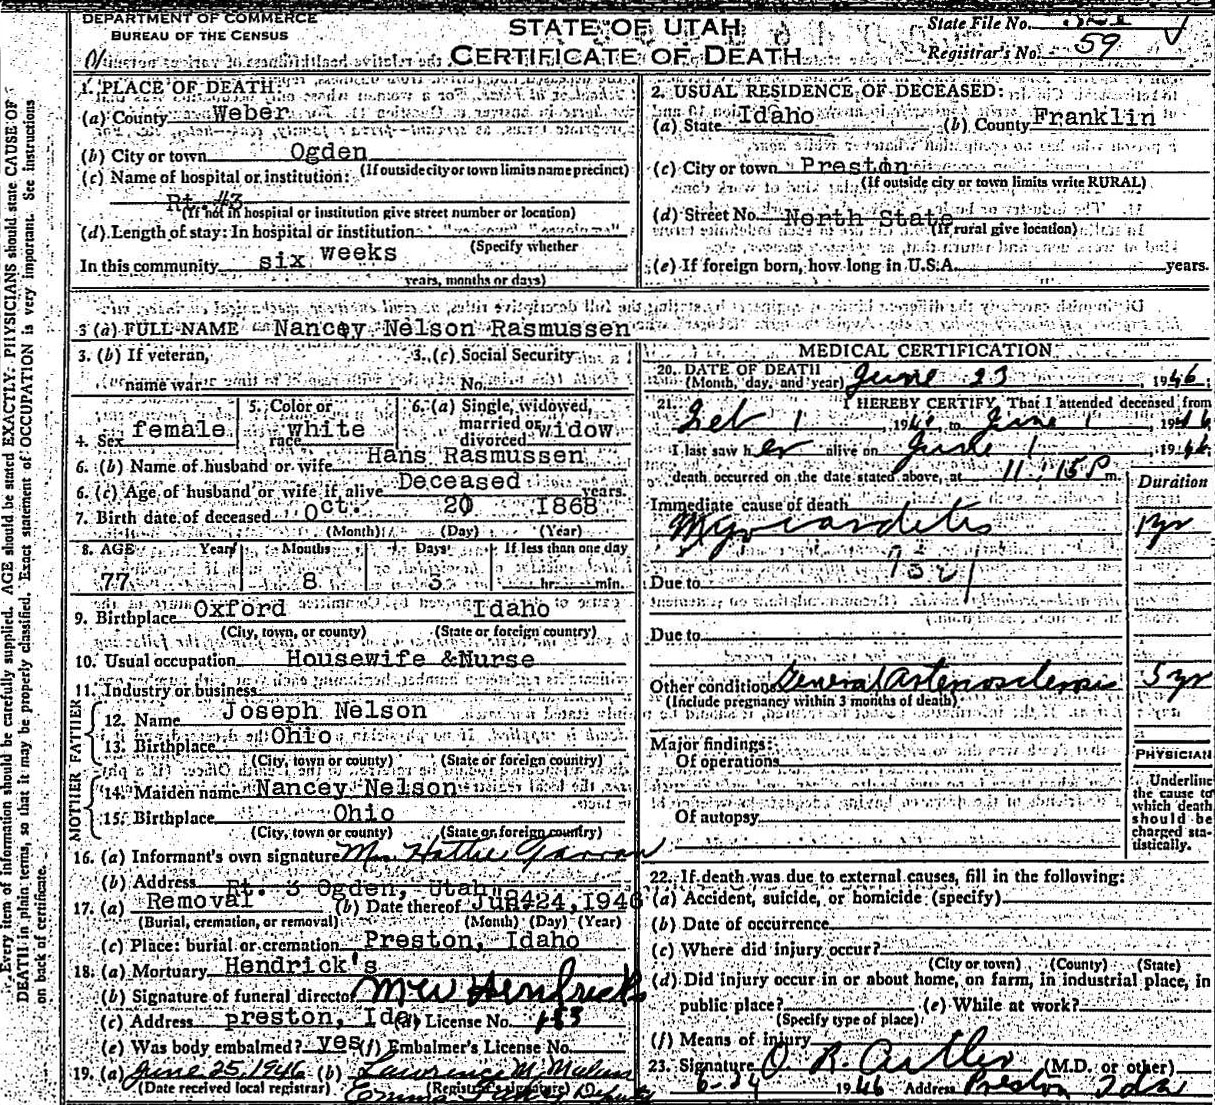 DEPARTMENT OF COMMERCE
BUREAU OF THE CENSUS
STATE OF UTAH
CERTIFICATE OF DEATH
State File No.
Registrar's No. 59
Every item of information should be carefully supplied. AGE should be stated EXACTLY. PHYSICIANS should state CAUSE OF
DEATH in plain terms, so that it may be properly classified. Exact statement of OCCUPATION is very important. See instructions
on back of certificate.
1. PLACE OF DEATH:
(a) County Weber
(b) City or town Ogden
(If outside city or town limits name precinct)
(c) Name of hospital or institution:
Rt. #3
(If not in hospital or institution give street number or location)
(d) Length of stay: In hospital or institution
(Specify whether
In this community six weeks
years, months or days)
2. USUAL RESIDENCE OF DECEASED:
(a) State Idaho (b) County Franklin
(c) City or town Preston
(If outside city or town limits write RURAL)
(d) Street No. North State
(If rural give location)
(e) If foreign born, how long in U.S.A. years.
3 (a) FULL NAME Nancey Nelson Rasmussen
3. (b) If veteran, name war 3. (c) Social Security No.
4. Sex female 5. Color or race white 6. (a) Single, widowed, married or divorced widow
6. (b) Name of husband or wife Hans Rasmussen
6. (c) Age of husband or wife if alive Deceased years.
7. Birth date of deceased Oct. 20 1868
(Month) (Day) (Year)
8. AGE Years Months Days If less than one day
77 8 3 hr. min.
9. Birthplace Oxford Idaho
(City, town, or county) (State or foreign country)
10. Usual occupation Housewife &Nurse
11. Industry or business
FATHER
12. Name Joseph Nelson
13. Birthplace Ohio
(City, town or county) (State or foreign country)
MOTHER
14. Maiden name Nancey Nelson
15. Birthplace Ohio
(City, town or county) (State or foreign country)
16. (a) Informant's own signature Mrs. Hattie
(b) Address Rt. 3 Ogden, Utah
17. (a) Removal (b) Date thereof 24, 1946
(Burial, cremation, or removal) (Month) (Day) (Year)
(c) Place: burial or cremation Preston, Idaho
18. (a) Mortuary Hendrick's
(b) Signature of funeral director
(c) Address preston, Ida. (d) License No.
(e) Was body embalmed? yes (f) Embalmer's License No.
19. (a) June 25, 1946 (b) Lawrence M.
(Date received local registrar) (Registrar's signature)
Deputy
MEDICAL CERTIFICATION
20. DATE OF DEATH
(Month, day, and year) June 23, 1946
21. I HEREBY CERTIFY, That I attended deceased from
1 to June 1, 1946
I last saw her alive on June 1, 1946
death occurred on the date stated above, at 11:15 P m.
Duration
Immediate cause of death
Myocarditis 1 yr
Due to
Due to
Other conditions General Arteriosclerosis 5 yr
(Include pregnancy within 3 months of death)
Major findings:
Of operations
Of autopsy
PHYSICIAN
Underline
the cause to
which death
should be
charged sta-
tistically.
22. If death was due to external causes, fill in the following:
(a) Accident, suicide, or homicide (specify)
(b) Date of occurrence
(c) Where did injury occur?
(City or town) (County) (State)
(d) Did injury occur in or about home, on farm, in industrial place, in
public place? (e) While at work?
(Specify type of place)
(f) Means of injury
23. Signature O. R. (M.D. or other)
6-24 1946 Address Preston Ida